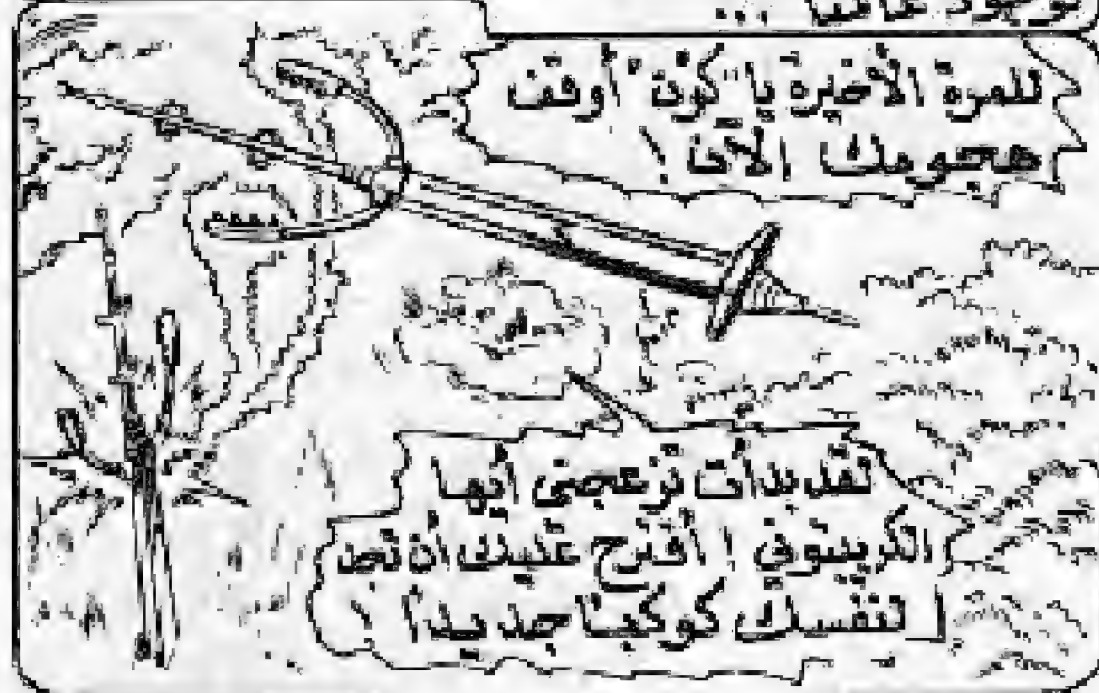 للمرة الأخيرة يا "كون" أوقف
هجومك الآن !
لقد بدأت تزعجني أيها
الكريبتوني ! أقترح عليك أن تجد
لنفسك كوكبا جديدا !